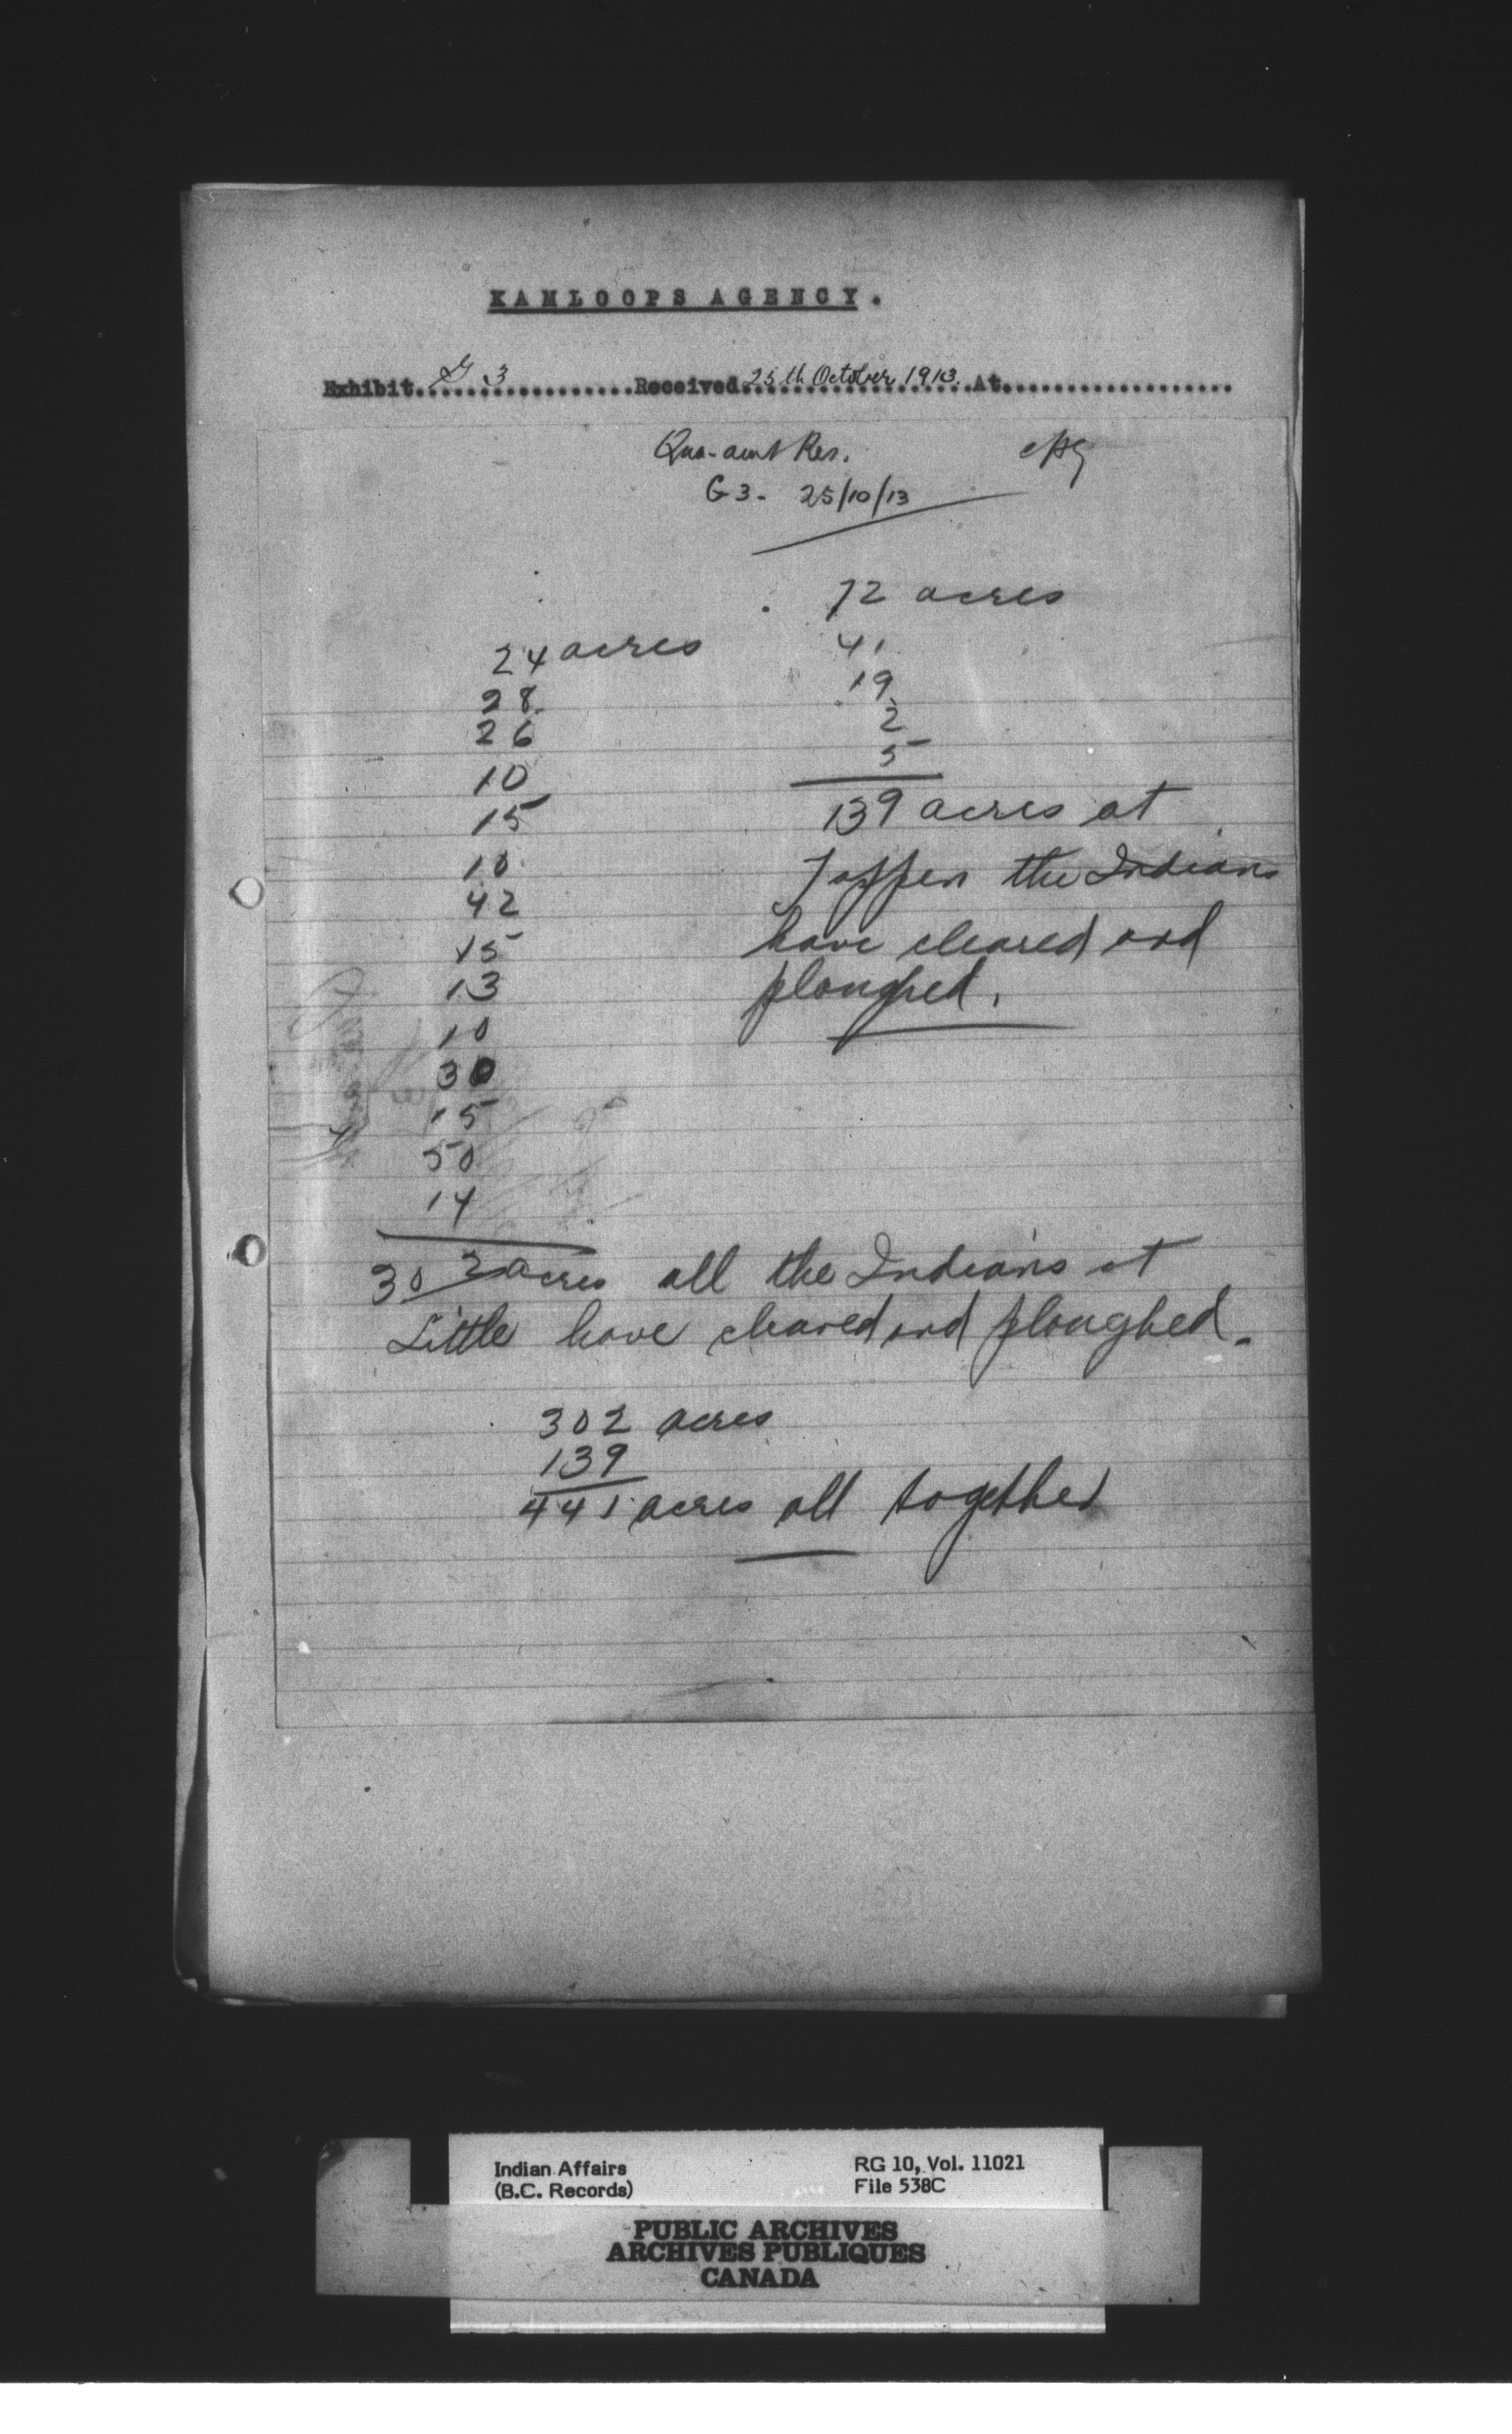 KAMLOOPS AGENCY.
Exhibit G 3 Received 25th October 1913. At
Qua-aut Res.
G 3 - 25/10/13
24 acres
28
26
10
15
10
42
15
13
10
30
15
50
14
302 acres all the Indians at
Little have cleared and ploughed.
72 acres
41
19
2
5
139 acres at
Tappen the Indians
have cleared and
ploughed.
302 acres
139
441 acres all together
Indian Affairs
(B.C. Records)
RG 10, Vol. 11021
File 538C
PUBLIC ARCHIVES
ARCHIVES PUBLIQUES
CANADA